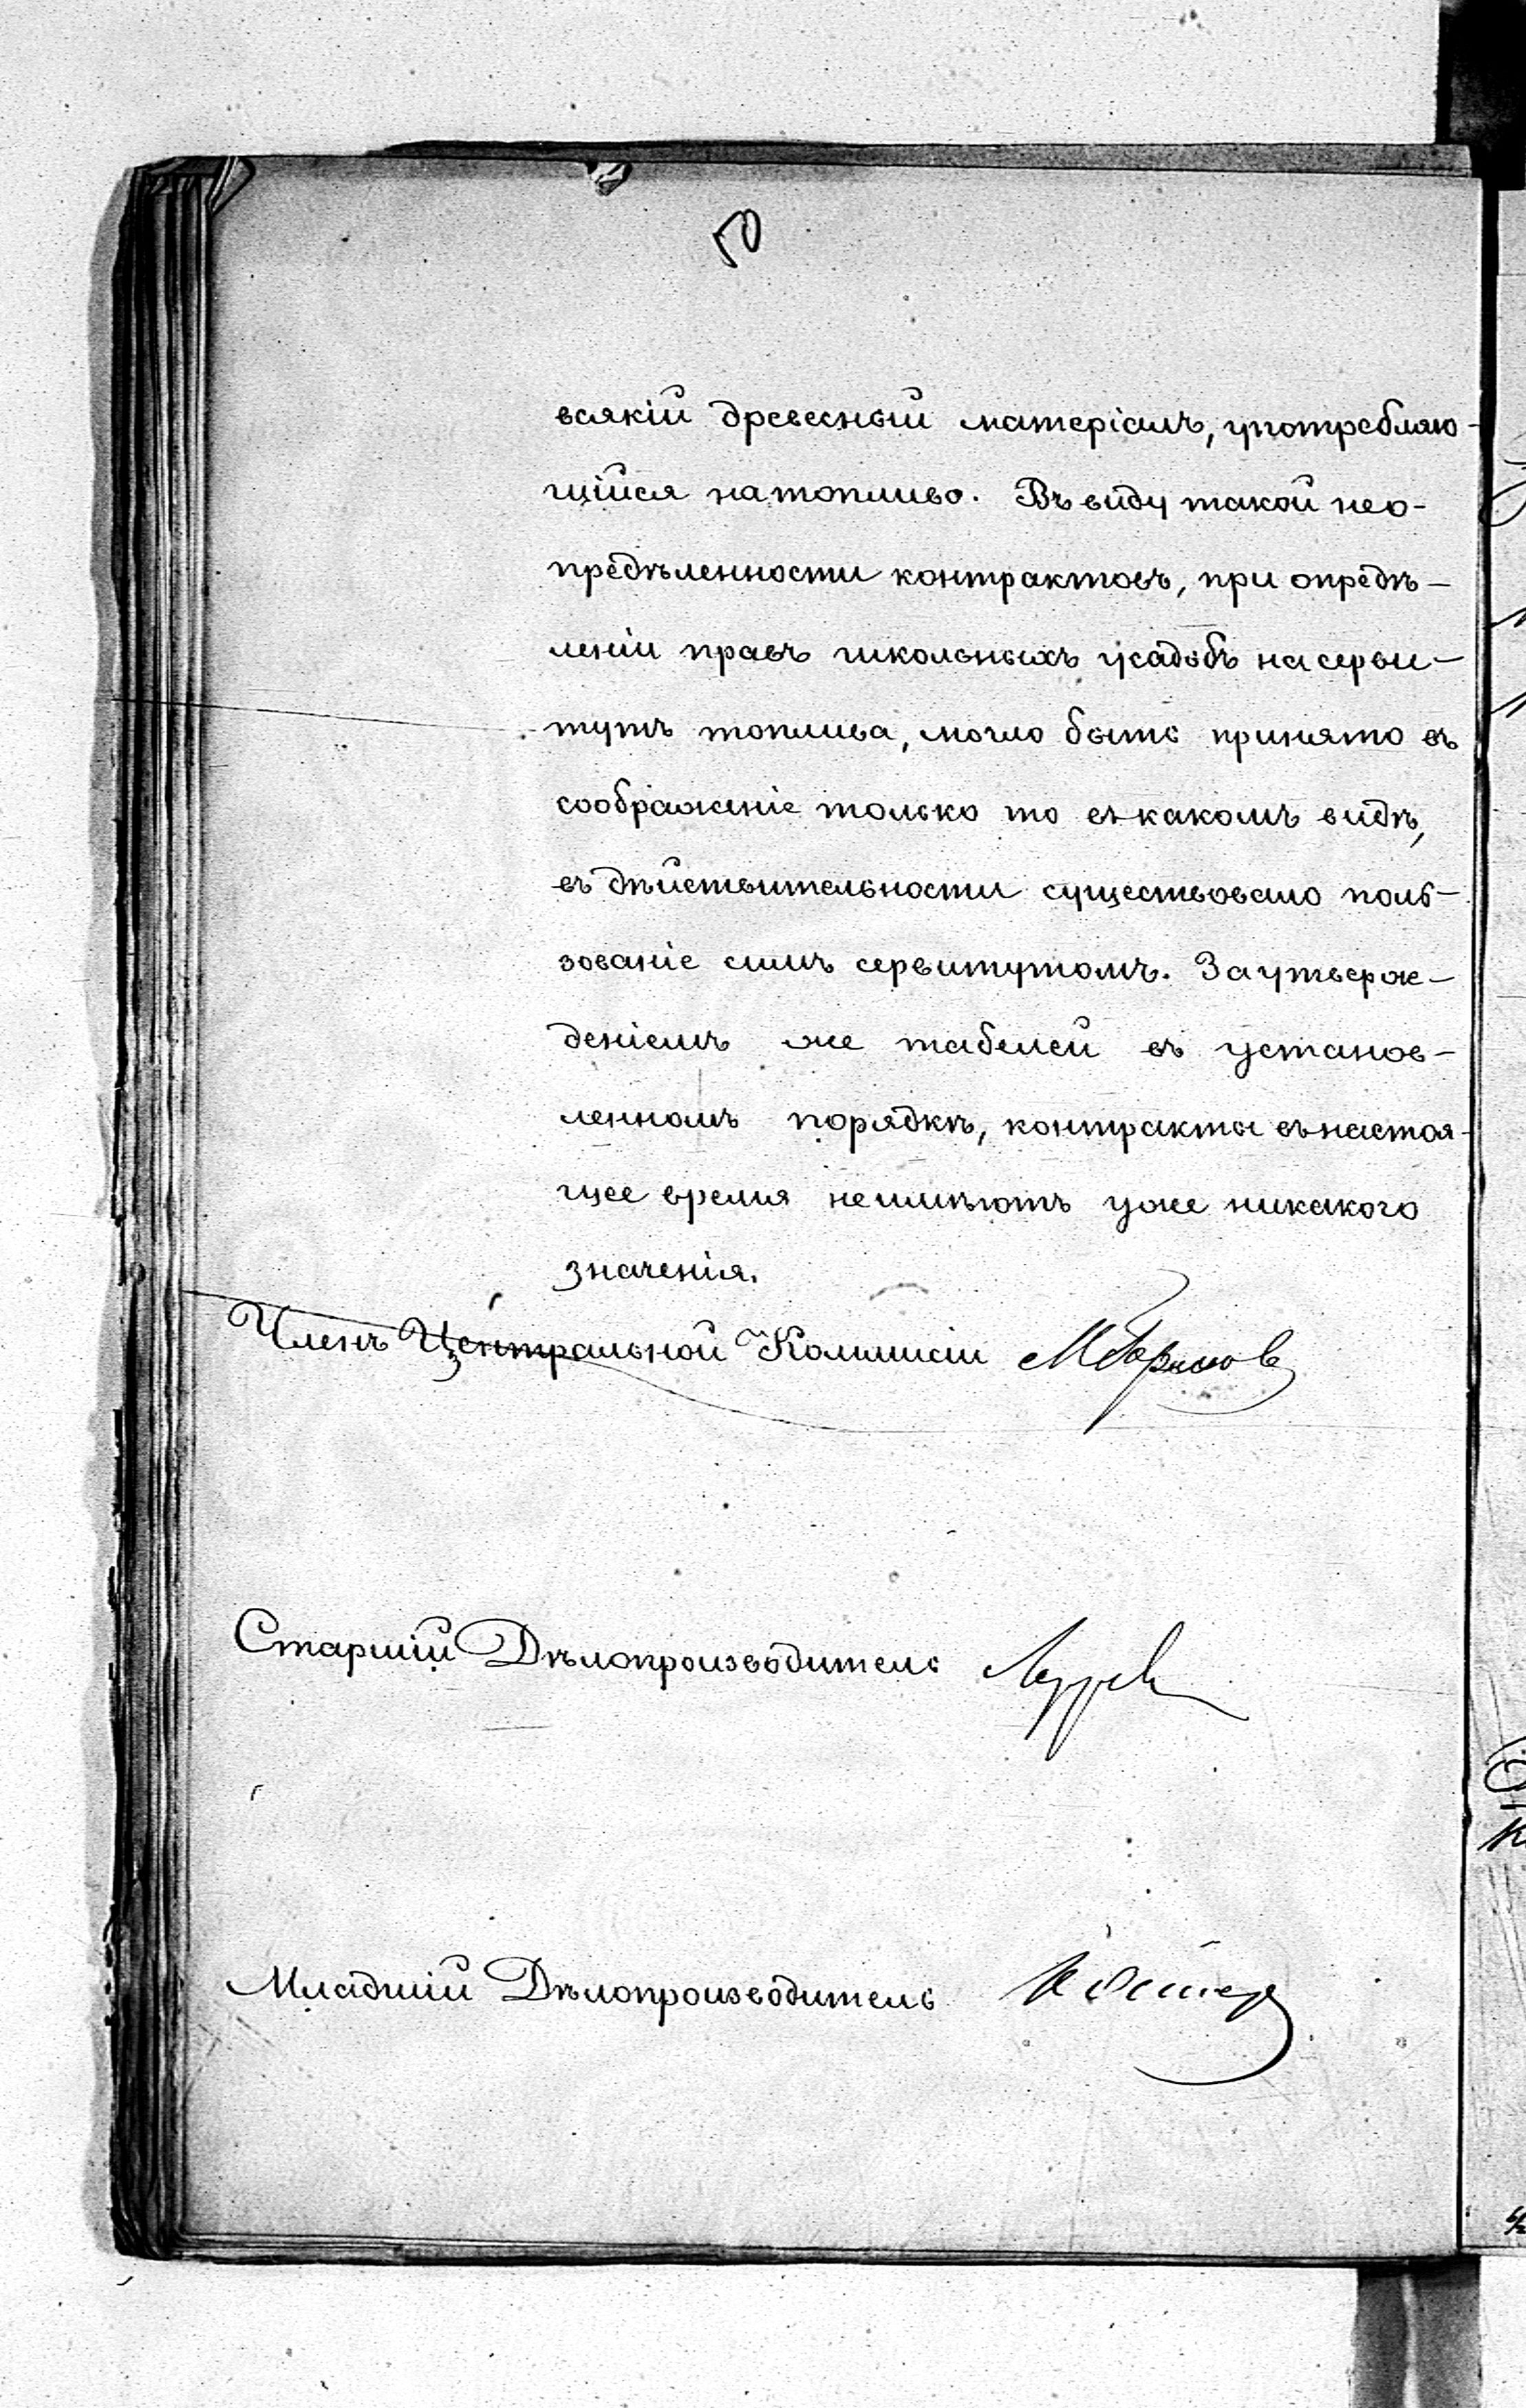 50
всякій древесный матеріалъ, употребляю-
щійся на топливо. Въ виду такой нео-
предѣленности контрактовъ, при опредѣ-
леніи правъ школьныхъ усадьбъ на серви-
тутъ топлива, могло быть принято въ
соображеніе только то въ какомъ видѣ,
въ дѣйствительности существовало поль-
зованіе симъ сервитутомъ. За утверж-
деніемъ же табелей въ установ-
ленномъ порядкѣ, контракты въ настоя-
щее время не имѣютъ уже никакого
значенія.
Членъ Центральной Коммисіи
Старшій Дѣлопроизводитель
Младшій Дѣлопроизводитель